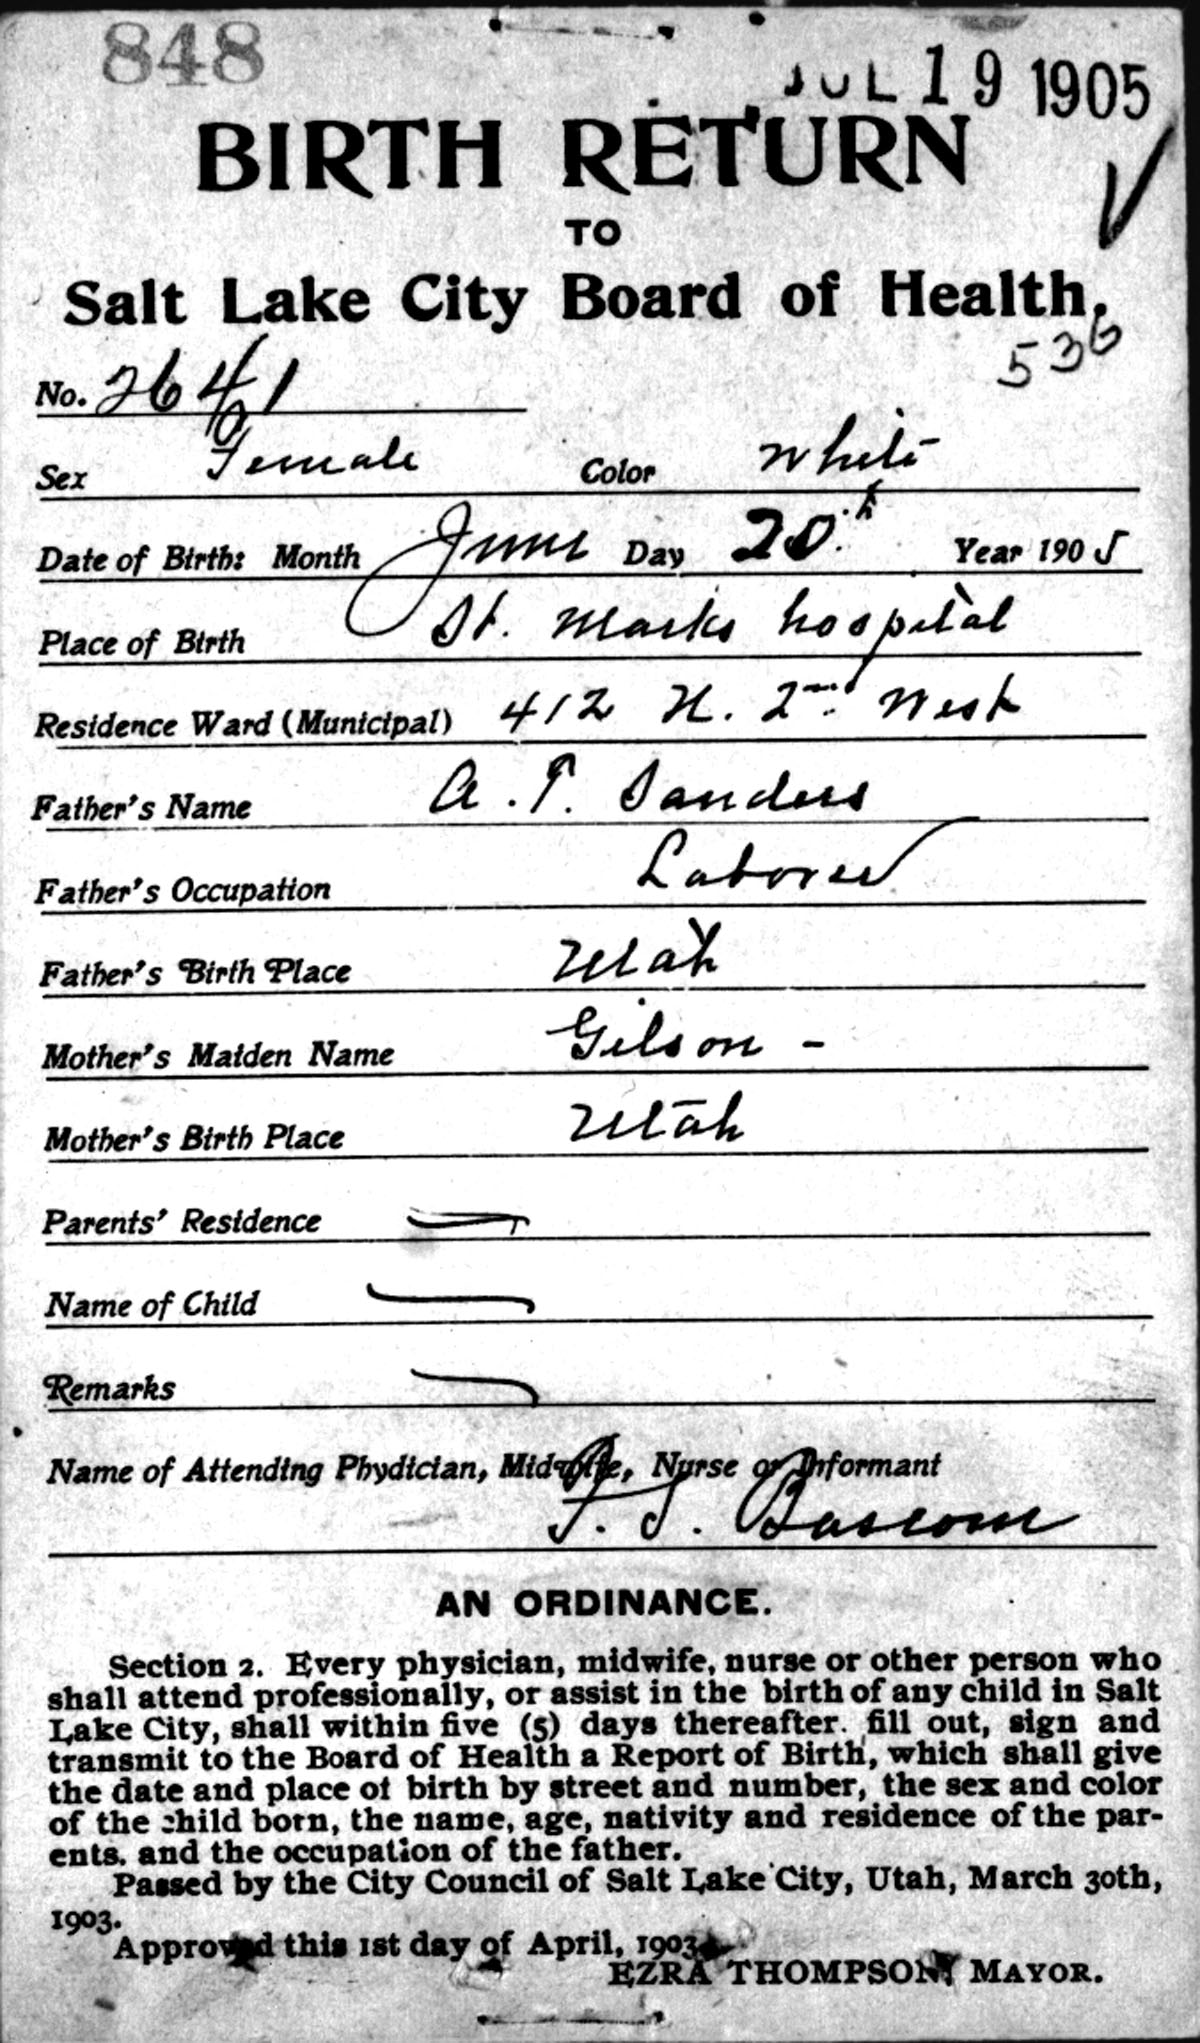 848
JUL 19 1905
BIRTH RETURN
TO
Salt Lake City Board of Health.
536
No. 2641
Sex Female Color White
Date of Birth: Month June Day 20th Year 1905
Place of Birth St. Marks hospital
Residence Ward (Municipal) 412 N. 2nd West
Father's Name A. T. Sanders
Father's Occupation Laborer
Father's Birth Place Utah
Mother's Maiden Name Gilson -
Mother's Birth Place Utah
Parents' Residence
Name of Child
Remarks
Name of Attending Phydician, Midwife, Nurse or Informant
F. S. Bascom
AN ORDINANCE.
Section 2. Every physician, midwife, nurse or other person who
shall attend professionally, or assist in the birth of any child in Salt
Lake City, shall within five (5) days thereafter. fill out, sign and
transmit to the Board of Health a Report of Birth, which shall give
the date and place of birth by street and number, the sex and color
of the child born, the name, age, nativity and residence of the par-
ents. and the occupation of the father.
Passed by the City Council of Salt Lake City, Utah, March 30th,
1903.
Approved this 1st day of April, 1903.
EZRA THOMPSON, MAYOR.